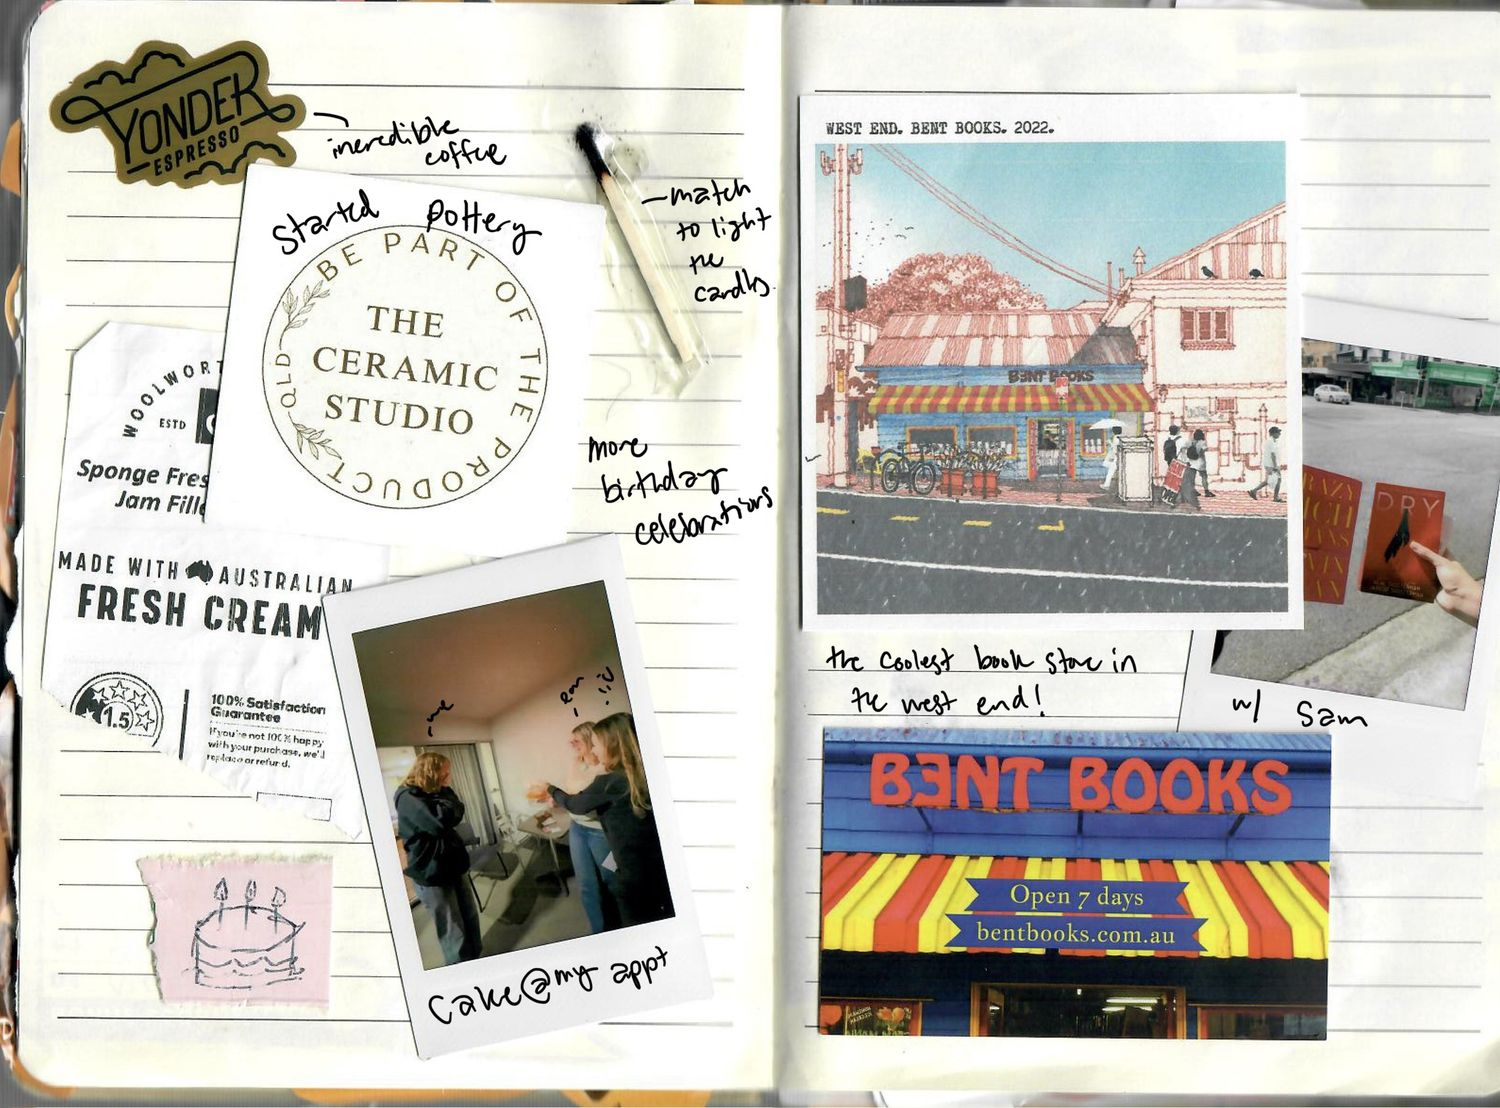 YONDER
ESPRESSO
incredible
coffee
match
to light
the
candles
Started Pottery
BE PART OF THE PRODUCT
QLD
THE
CERAMIC
STUDIO
WOOLWORT
ESTD
Sponge Fres
Jam Fille
MADE WITH AUSTRALIAN
FRESH CREAM
1.5
100% Satisfaction
Guarantee
If you're not 100% happy
with your purchase, we'll
replace or refund.
more
birthday
celebrations
me
Cake@my appt
WEST END. BENT BOOKS. 2022.
BENT BOOKS
RAZY
ICH
IANS
VIN
AN
DRY
the coolest book store in
the west end!
w/ Sam
BENT BOOKS
Open 7 days
bentbooks.com.au